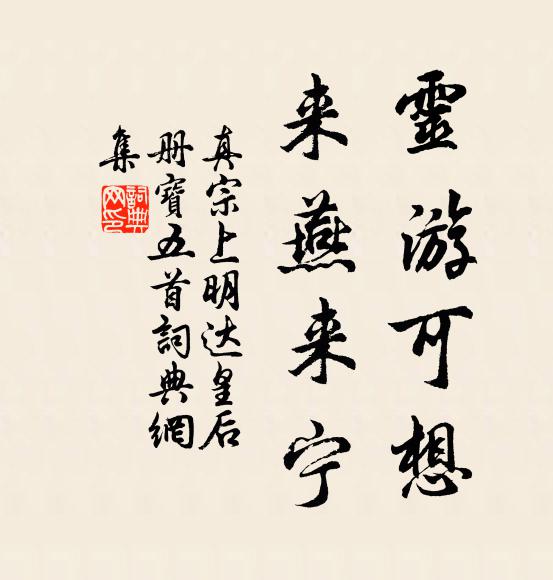 靈游可想
来燕来宁
真宗上明达皇后
册寶五首詞典網
集
詞典网印